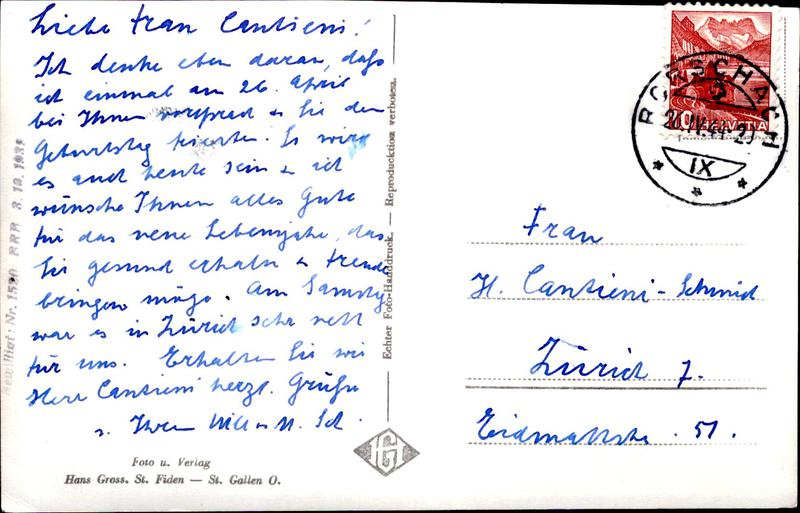 Liebe Frau Cantieni!
Ich denke eben daran, daſs
ich einmal am 26. April
bei Ihnen vorsprach & Sie den
Geburtstag feierten. Es wird
es auch heute sein & ich
wünsche Ihnen alles Gute
für das neue Lebensjahr, das
Sie gesund erhalten & Freude
bringen möge. Am Samstag
war es in Zürich sehr nett
für uns. Erhalten Sie wie
Herr Cantieni herzl. Grüße
v. Ihrem
Foto u. Verlag
Hans Gross. St. Fiden — St. Gallen O.
Nr. 1520 BRB 3.10.1939
Echter Foto-Handdruck. — Reproduktion verboten.
HG
RORSCHACH
IX
HELVETIA
Frau
H. Cantieni-Schmid
Zürich 7.
Eidmattstr. 51.